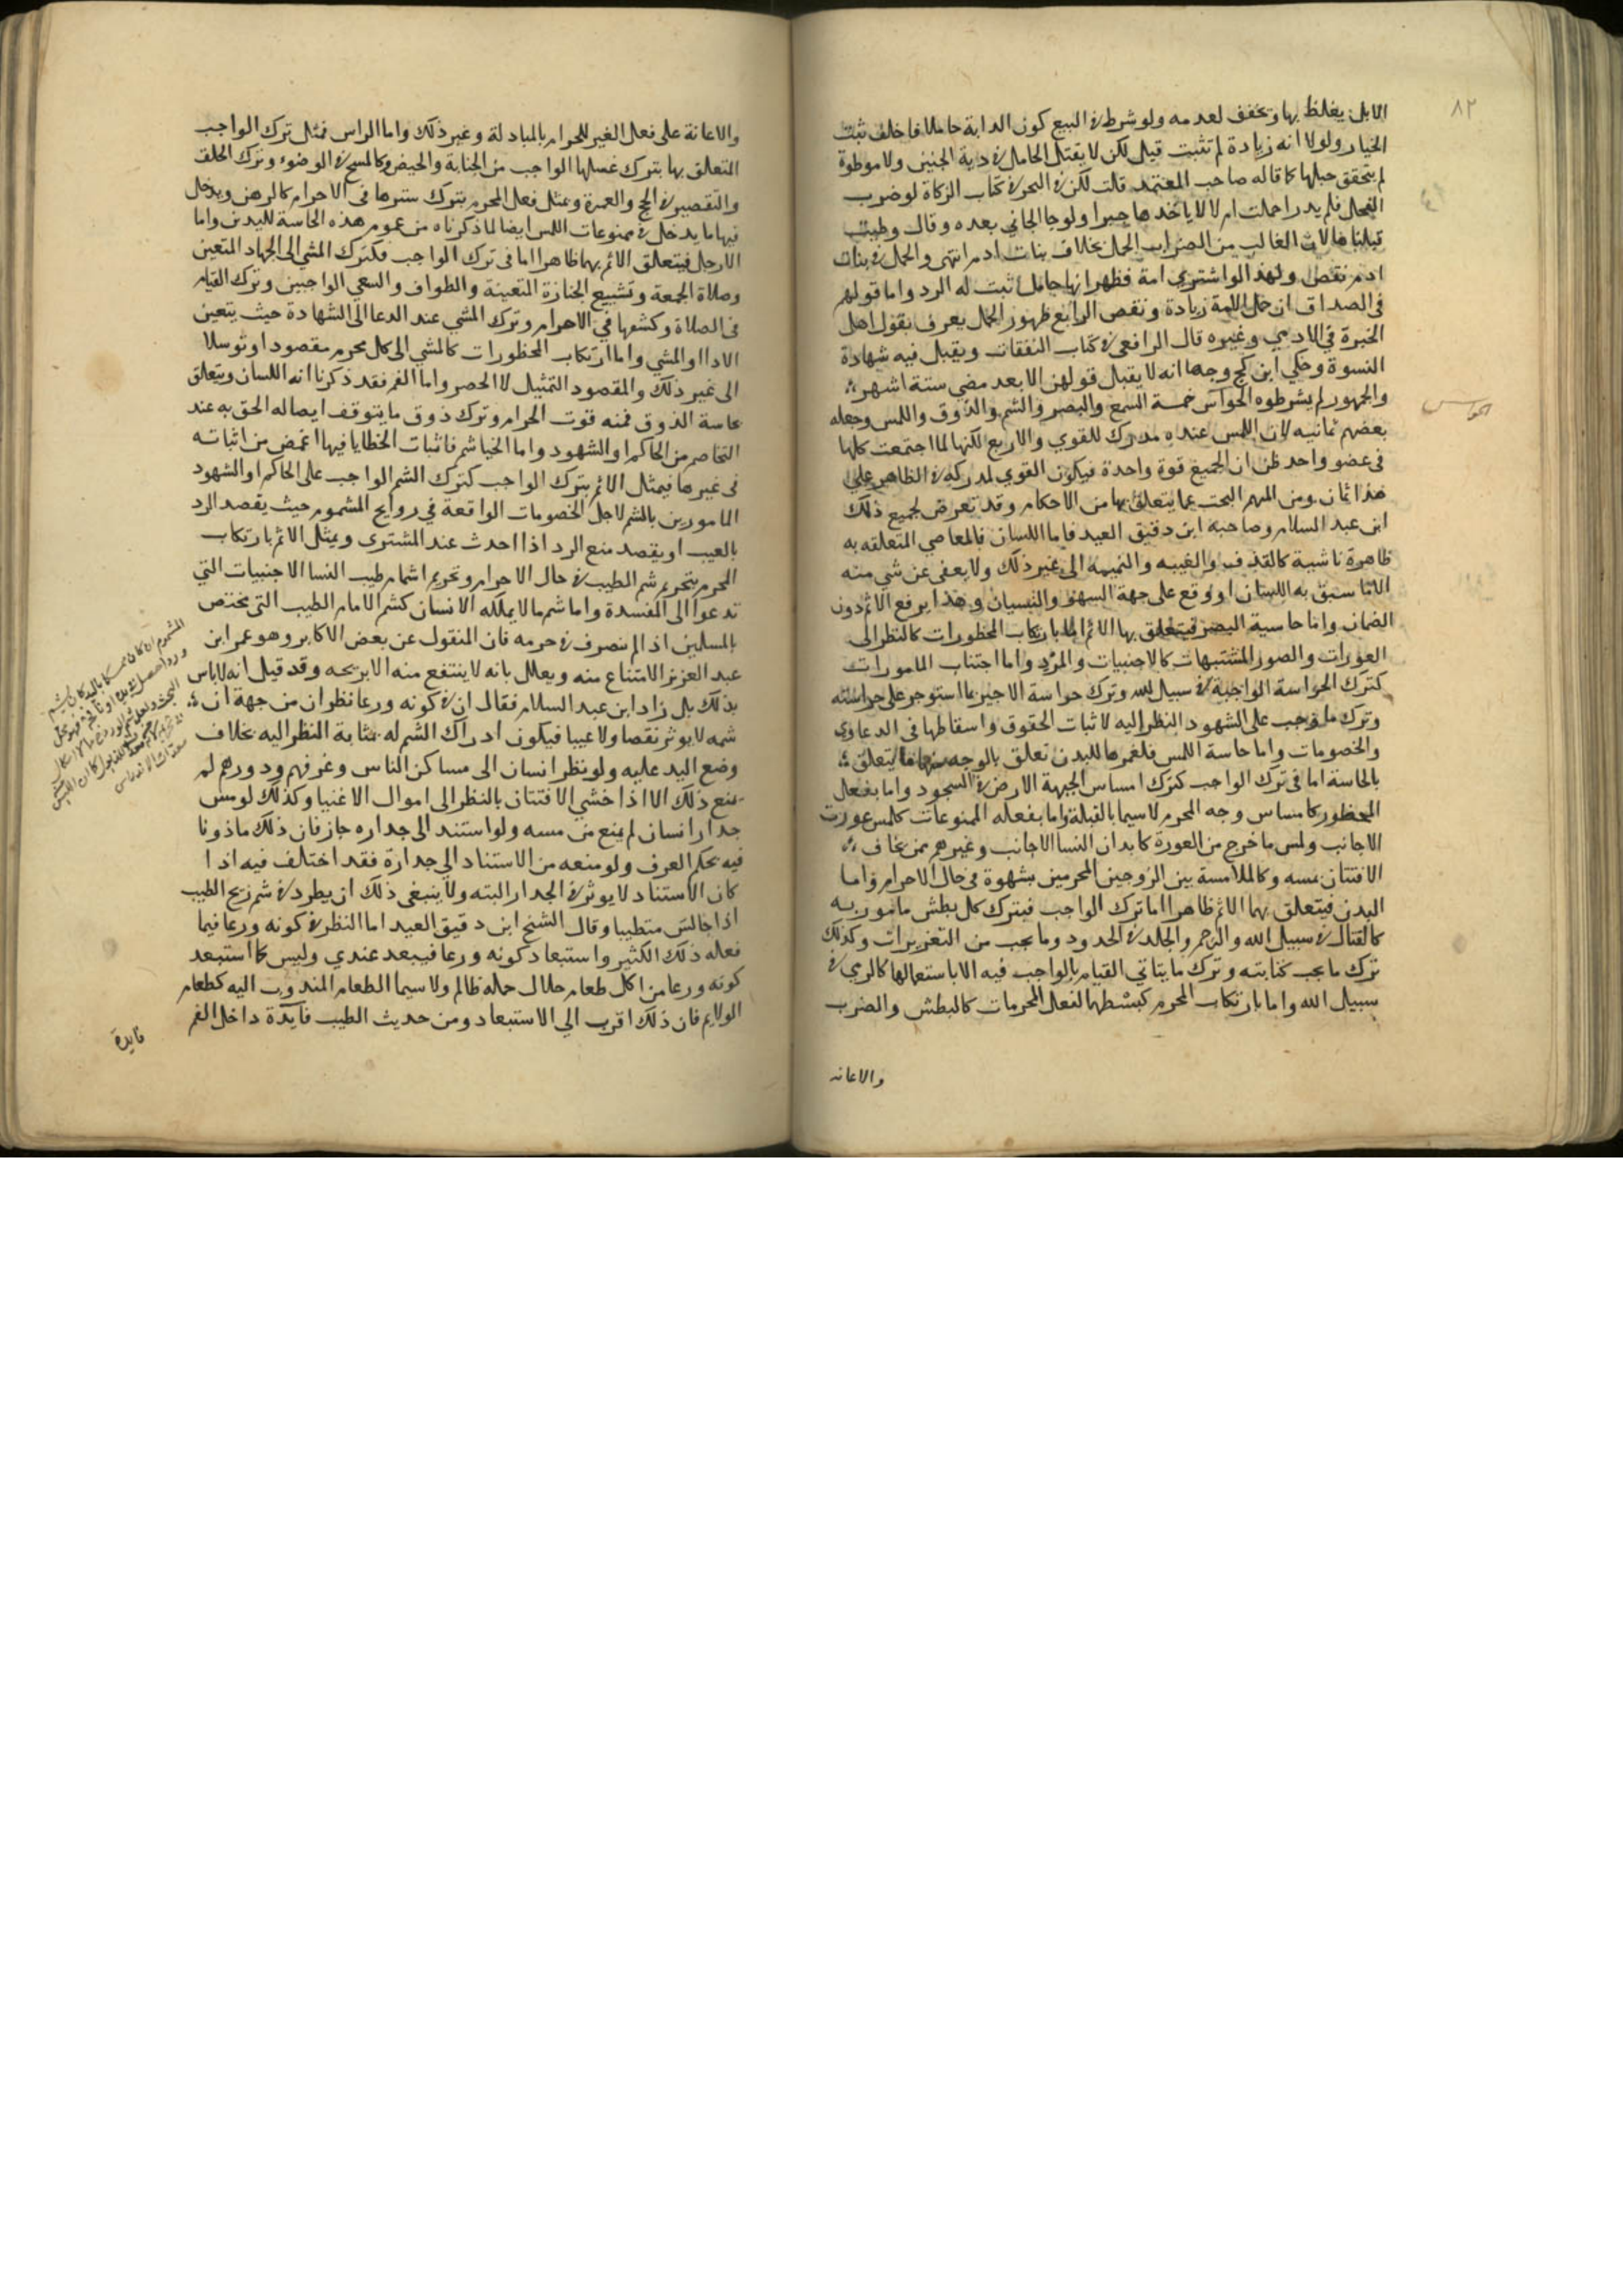 ٨٢
الابل يغلظ بها وتخفف لعدمه ولو شرط في البيع كون الدابة حاملا فاخلف ثبت
الخيار ولولا انه زيادة لم تثبت قيل لكن لا يقتل الحامل في دية الجنين ولا موطوة
لم يتحقق حبلها كما قاله صاحب المعتمد قلت لكن في البحر في كتاب الزكاة لو ضرب
الفحل فلم يدر احملت ام لا لا ياخدها جبرا ولو جا الجاني بعده وقال وطيت
لان الغالب من الضراب الحمل بخلاف بنات ادم انتهى والحمل في بنات
ادم نقص ولهذا لو اشترى امة فظهر انها حامل ثبت له الرد واما قولهم
في الصداق ان حمل الامة زيادة ونقص الرابع ظهور الحمل يعرف بقول اهل
الخبرة في الادمي وغيره قال الرافعي في كتاب النفقات ويقبل فيه شهادة
النسوة وحكي ابن كج وجها انه لا يقبل قولهن الا بعد مضي ستة اشهر
والجمهور لم يشرطوه الحواس خمسة السمع والبصر والشم والذوق واللمس وجعله
بعضهم ثمانيه لان اللمس عنده مدرك للقوي والاربع لكنها لما اجتمعت كلها
في عضو واحد ظن ان الجميع قوة واحدة فيكون القوي لمدركه في الظاهر على
هذا ثمان ومن المهم البحث عما يتعلق بها من الاحكام وقد تعرض لجميع ذلك
ابن عبد السلام وصاحبه ابن دقيق العيد فاما اللسان فالمعاصي المتعلقه به
ظاهرة ناشية كالقذف والغيبه والنميمه الى غير ذلك ولا يعفى عن شي منه
الا ما سبق به اللسان او وقع على جهة السهو والنسيان وهذا يرفع الاثم دون
الضمان واما حاسية البصر فيتعلق بها الاثم اما بارتكاب المحظورات كالنظر الى
العورات والصور المشتبهات كالاجنبيات والمرد واما اجتناب المامورات
كترك الحراسة الواجبة في سبيل لله وترك حواسة الاجير ما استوجر على حراسته
وترك ما وجب على الشهود النظر اليه لاثبات الحقوق واسقاطها في الدعاوي
والخصومات واما حاسة اللمس فلعمومها للبدن تعلق بالوجه منها ما يتعلق
بالحاسة اما في ترك الواجب كترك امساس الجبهة الارض في السجود واما بفعل
المحظور كامساس وجه المحرم لا سيما بالقبلة واما بفعله الممنوعات كلمس عورت
الاجانب ولمس ما خرج من العورة كابدان النسا الاجانب وغيرهم ممن يخاف
الافتتان بمسه وكالملامسة بين الزوجين المحرمين بشهوة في حال الاحرام واما
البدن فيتعلق بهما الاثم ظاهرا اما ترك الواجب فبترك كل بطش مامور به
كالقتال في سبيل الله والرجم والجلد في الحدود وما يجب من التعزيرات وكذلك
ترك ما يجب كتابته وترك ما يتاتي القيام بالواجب فيه الا باستعمالها كالرمي في
سبيل الله واما بارتكاب المحرم كبسطها لفعل المحرمات كالبطش والضرب
والاعانه
والاعانة على فعل الغير للحرام بالمبادلة وغير ذلك واما الراس فمثل ترك الواجب
المتعلق بها بترك غسلها الواجب من الجنابة والحيض وكالمسح في الوضوء وترك الحلق
والتقصير في الحج والعمرة ومثل فعل المحرم بترك سترها في الاحرام كالرهن ويدخل
فيها ما يدخل في ممنوعات اللمس ايضا لما ذكرناه من عموم هذه الحاسة للبدن واما
الارجل فيتعلق الاثم بهما ظاهرا اما في ترك الواجب فكترك المشي الى الجهاد المتعين
وصلاة الجمعة وتشييع الجنازة المتعينة والطواف والسعي الواجبين وترك القيام
في الصلاة وكشفها في الاحرام وترك المشي عند الدعا الى الشهادة حيث يتعين
الادا او المشي واما ارتكاب المحظورات كالمشي الى كل محرم مقصود او توسلا
الى غير ذلك والمقصود التمثيل لا الحصر واما الفم فقد ذكرنا انه اللسان ويتعلق
بحاسة الذوق فمنه قوت الحرام وترك ذوق ما يتوقف ايصاله الحق به عند
التخاصم من الحاكم او الشهود واما الخياشم فاثبات الخطايا فيها اغمض من اثباته
في غيرها فيمثل الاثم بترك الواجب كترك الشم الواجب على الحاكم او الشهود
المامورين بالشم لاجل الخصومات الواقعة في روايح المشموم حيث يقصد الرد
بالعيب او يقصد منع الرد اذا احدث عند المشترى ويمثل الاثم بارتكاب
المحرم بتحريم شم الطيب في حال الاحرام وتحريم اشمام طيب النسا الاجنبيات التي
تدعوا الى المفسدة واما شم ما لا يملكه الانسان كشم الامام الطيب التي يختص
بالمسلمين اذا لم يتصرف في حرمه فان المنقول عن بعض الاكابر وهو عمر ابن
عبد العزيز الامتناع منه ويعلل بانه لا ينتفع منه الا بريحه وقد قيل انه لا باس
بذلك بل زاد ابن عبد السلام فقال ان في كونه ورعا نظر ان من جهة ان
شمه لا يوثر نقصا ولا عيبا فيكون ادراك الشم له بمثابة النظر اليه بخلاف
وضع اليد عليه ولو نظر انسان الى مساكن الناس وغرفهم ودورهم لم
يمنع ذلك الا اذا خشي الافتتان بالنظر الى اموال الاغنيا وكذلك لو مس
جدار انسان لم يمنع من مسه ولو استند الى جداره جاز فان ذلك ماذونا
فيه بحكم العرف ولو منعه من الاستناد الي جدارة فقد اختلف فيه اذا
كان الاستناد لا يوثر في الجدار البته ولا ينبغي ذلك ان يطرد في شم ريح الطيب
اذا جالس متطيبا وقال الشيخ ابن دقيق العيد اما النظر في كونه ورعا فيما
فعله ذلك الكثير واستبعاد كونه ورعا فيبعد عندي وليس كما استبعد
كونه ورعا من اكل طعام حلال حمله ظالم ولا سيما الطعام المندوب اليه كطعام
الولايم فان ذلك اقرب الي الاستبعاد ومن حديث الطيب فآيدة داخل الفم
فايدة